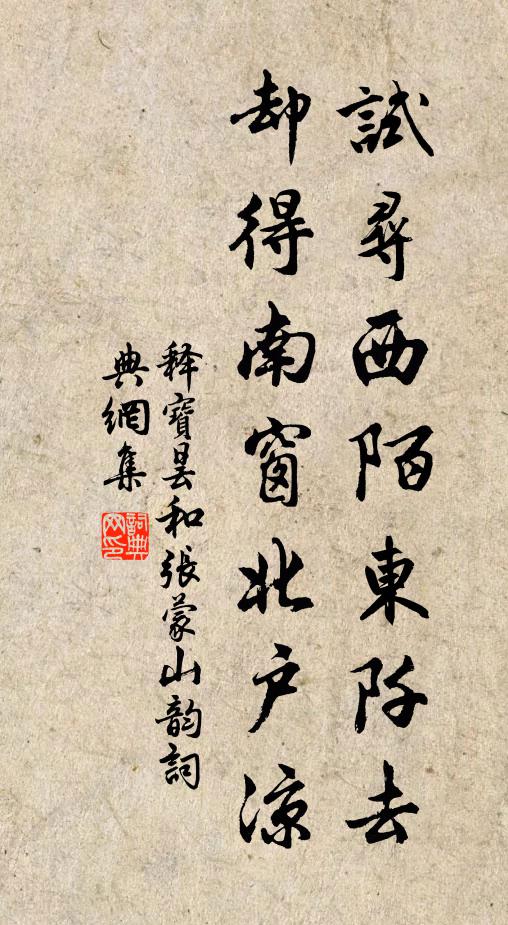 試尋西陌東阡去
却得南窗北户涼
釋寶曇和張蒙山韵詞
典網集
詞典网印